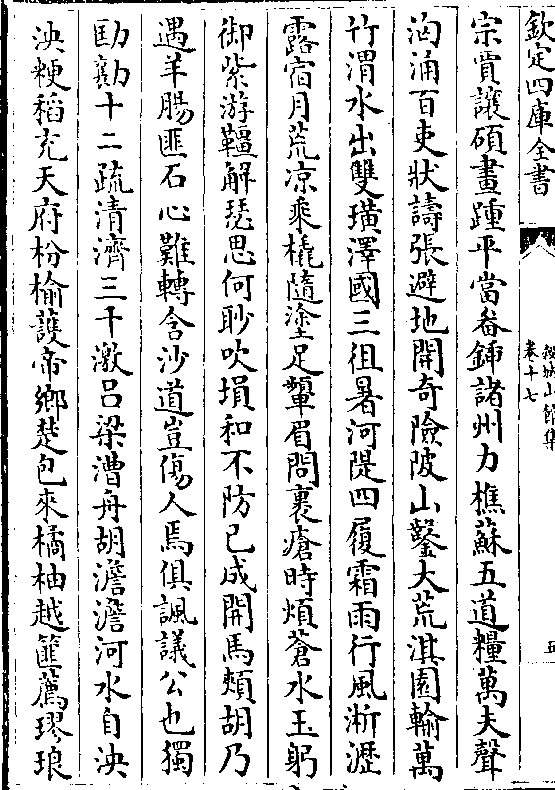 欽定四庫全書
卷十七
宗賁讓碩畫踵平當畚鍤諸州力樵蘇五道糧萬夫聲
洶涌百吏狀譸張避地開奇險陂山鑿大荒淇園輸萬
竹渭水出雙璜澤國三徂暑河隄四履霜雨行風淅瀝
露宿月荒凉乘橇隨塗足顰眉問裹瘡時煩蒼水玉躬
御紫游韁解瑟思何眇吹塤和不防已成開馬頰胡乃
遇羊腸匪石心難轉含沙道豈傷人焉俱諷議公也獨
劻勷十二疏清濟三千激呂梁漕舟胡澹澹河水自泱
泱粳稻充天府枌榆護帝鄉楚包來橘柚越篚薦璆琅